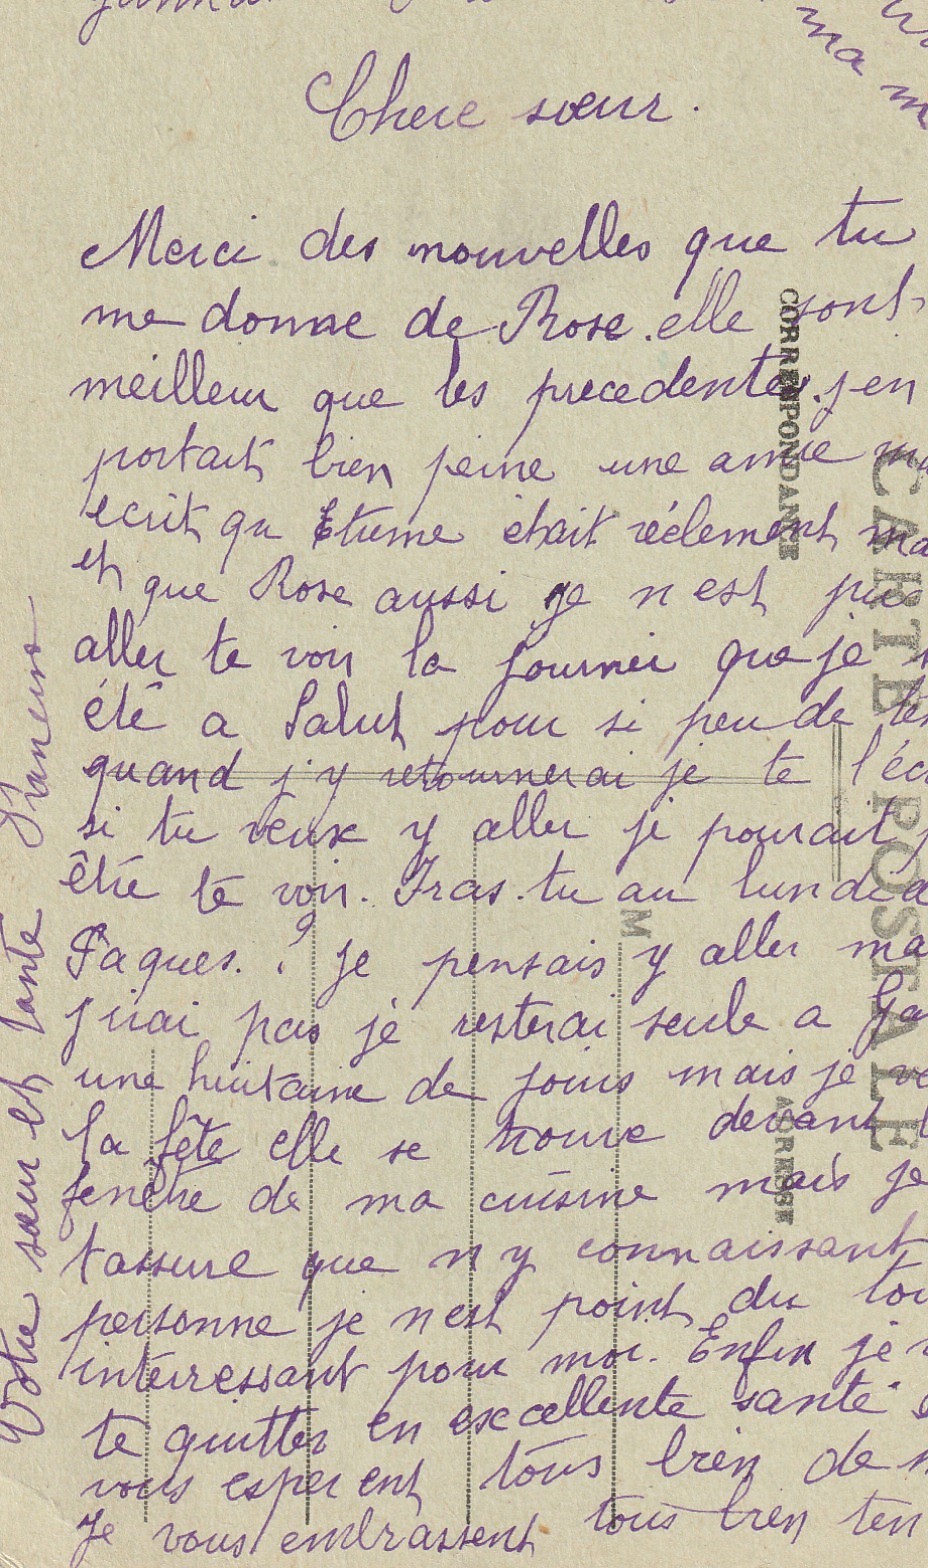 ma
Chere sœur.
Merci des nouvelles que tu
me donne de Rose. elle sont
meilleur que les precedentes. j en
portait bien peine une amie
ecrit qu Etieme était réclement
et que Rose aussi je n est pus
aller te voir la journeé que je
été a Salut pour si peu de
quand j'y retournerai je te
si tu veux y aller je pourait
être te voir. Iras.tu au lundi
Paques. ? je pensais y aller
j irai pas je resterai seule a
une huitaine de jours mais je
la fête elle se trouve devant
fenêtre de ma cuisine mais je
tassure que n y connaissant
personne je nest point du
intéressant pour moi. Enfin je
te quitter en excellente santé
vous esperent tous bien de
Je vous embrassent tous bien ten
Votre sœur et tante Planeins
CORRESPONDANCE
CARTE POSTALE
M
ADRESSE